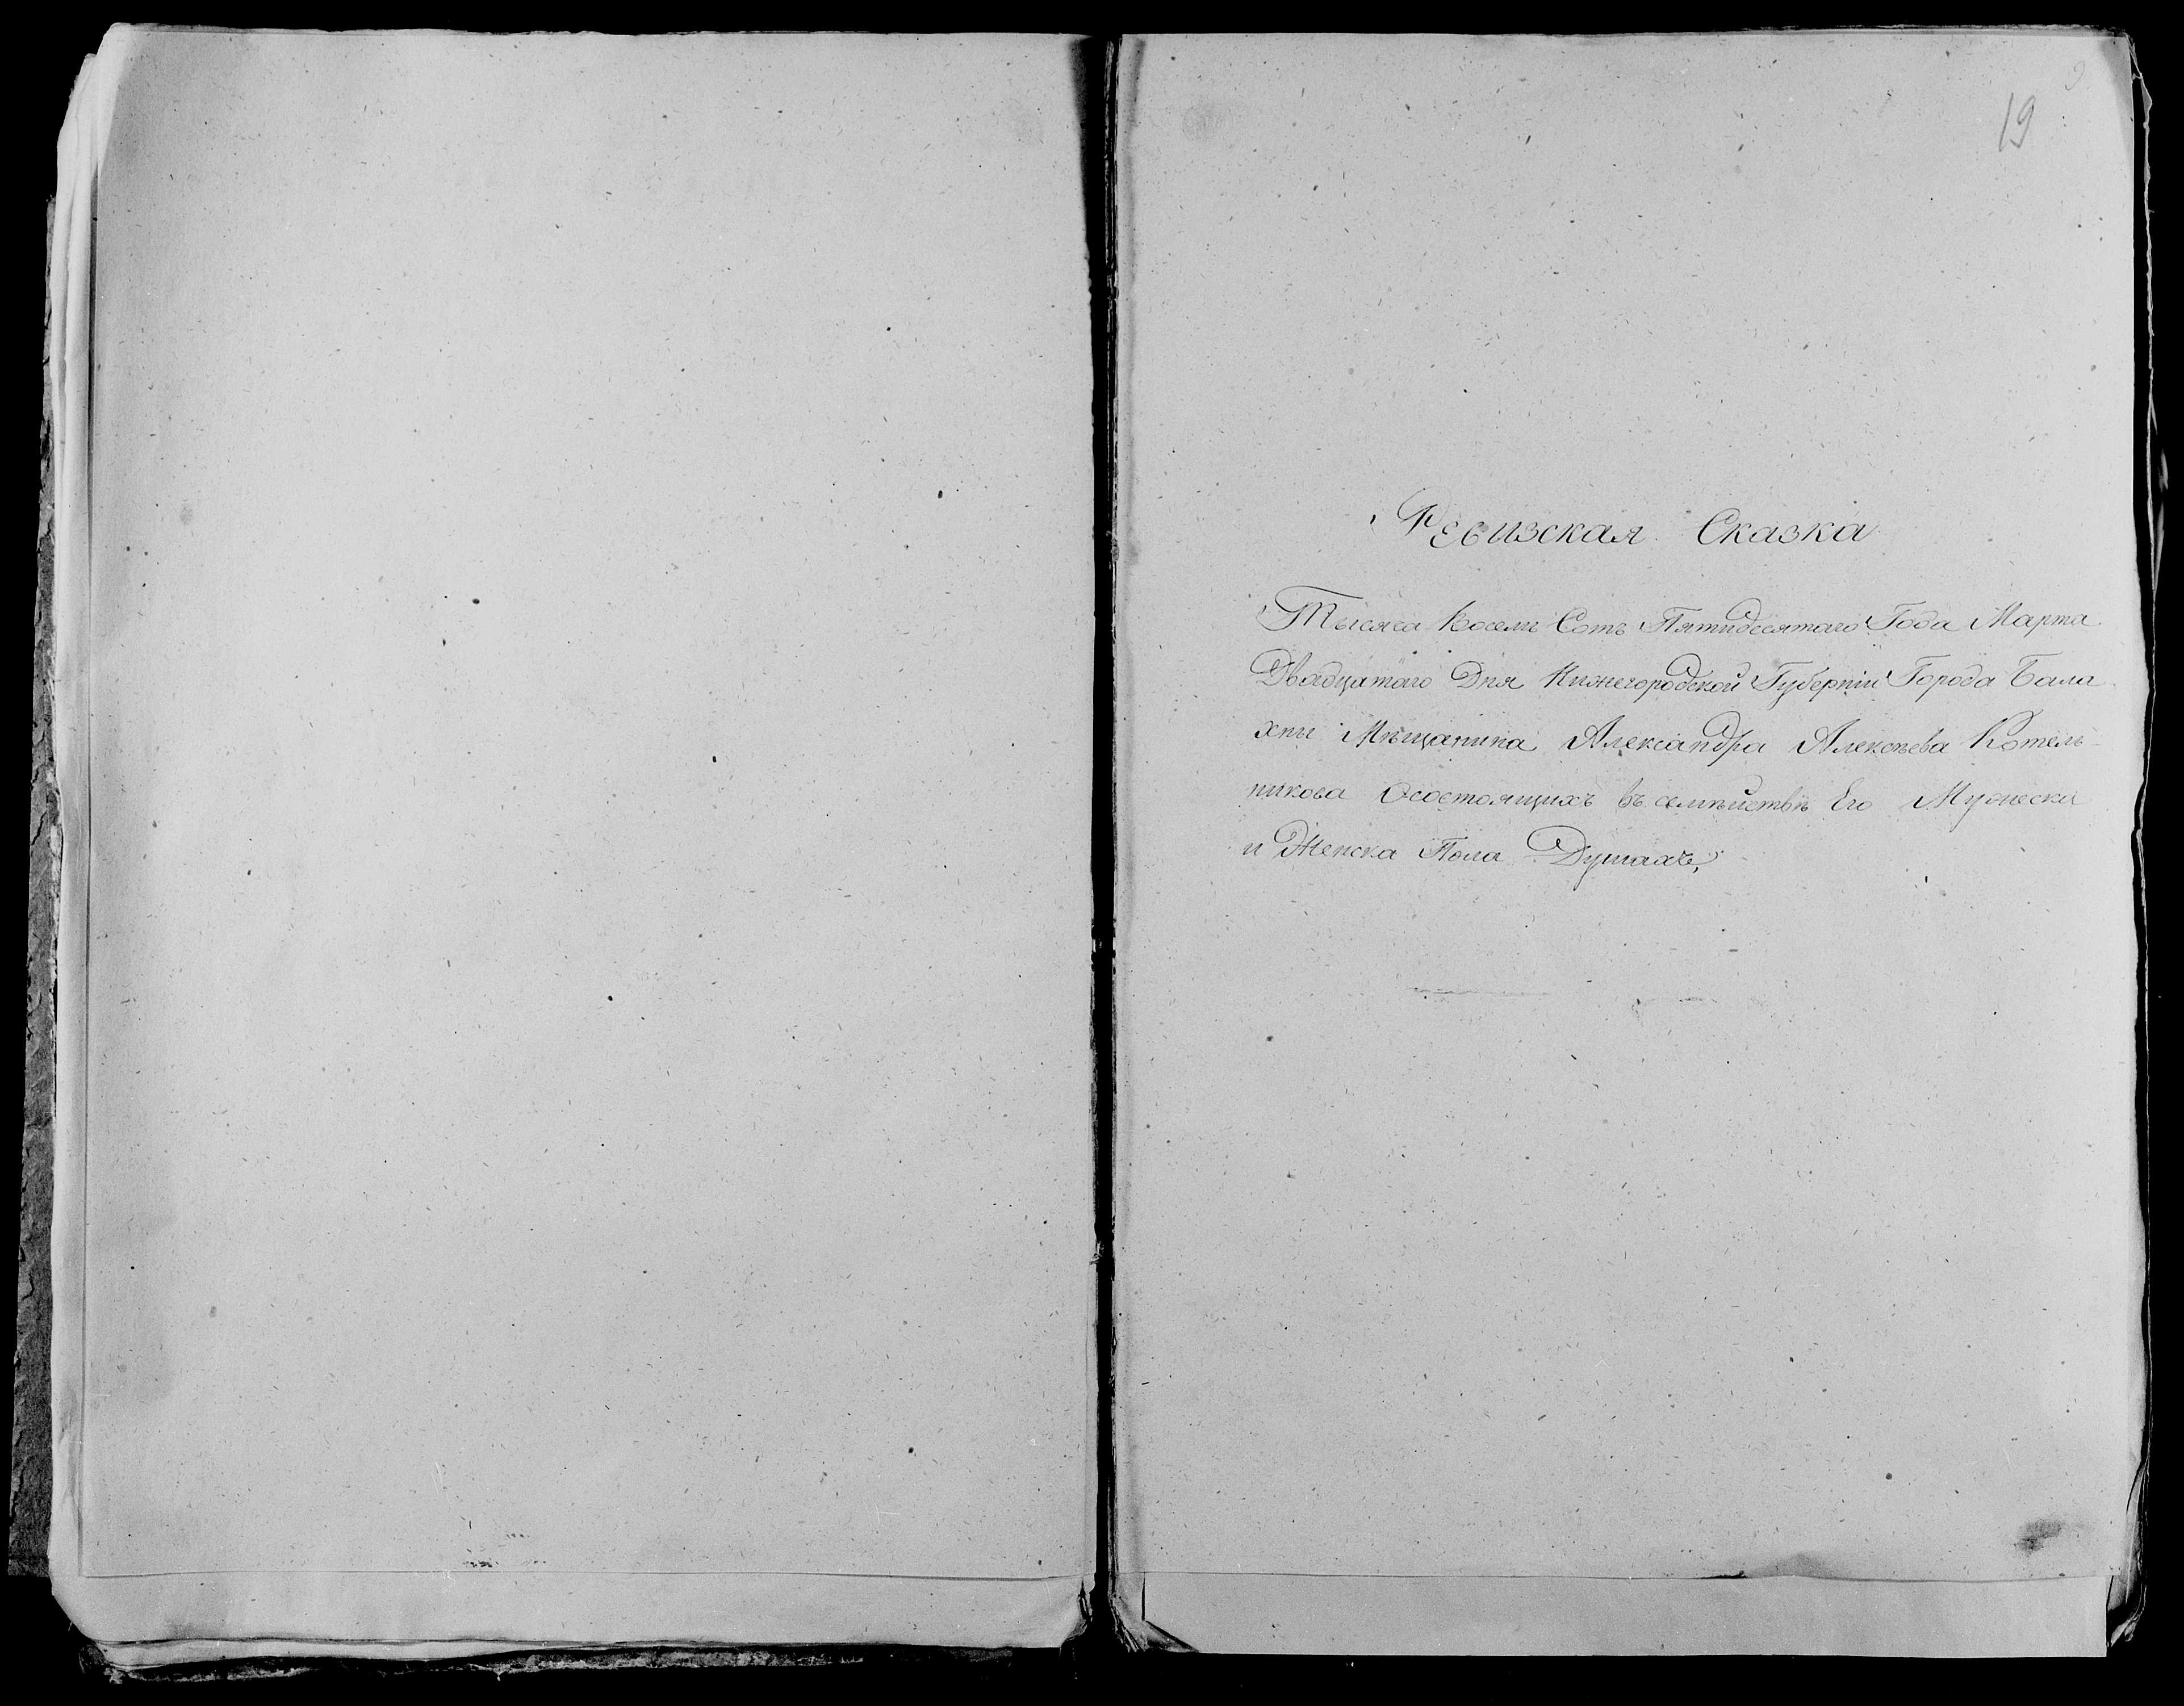 9
19
Ревизская Сказка
Тысяча Восемь Сотъ Пятидесятаго Года Марта
Двадцатаго Дня Нижегородской Губернiи Города Бала
хни Мѣщанина Александра Алексѣева Котель-
никова Осостоящихъ въ семѣйствѣ Его Мужеска
и Женска Пола Душахъ,